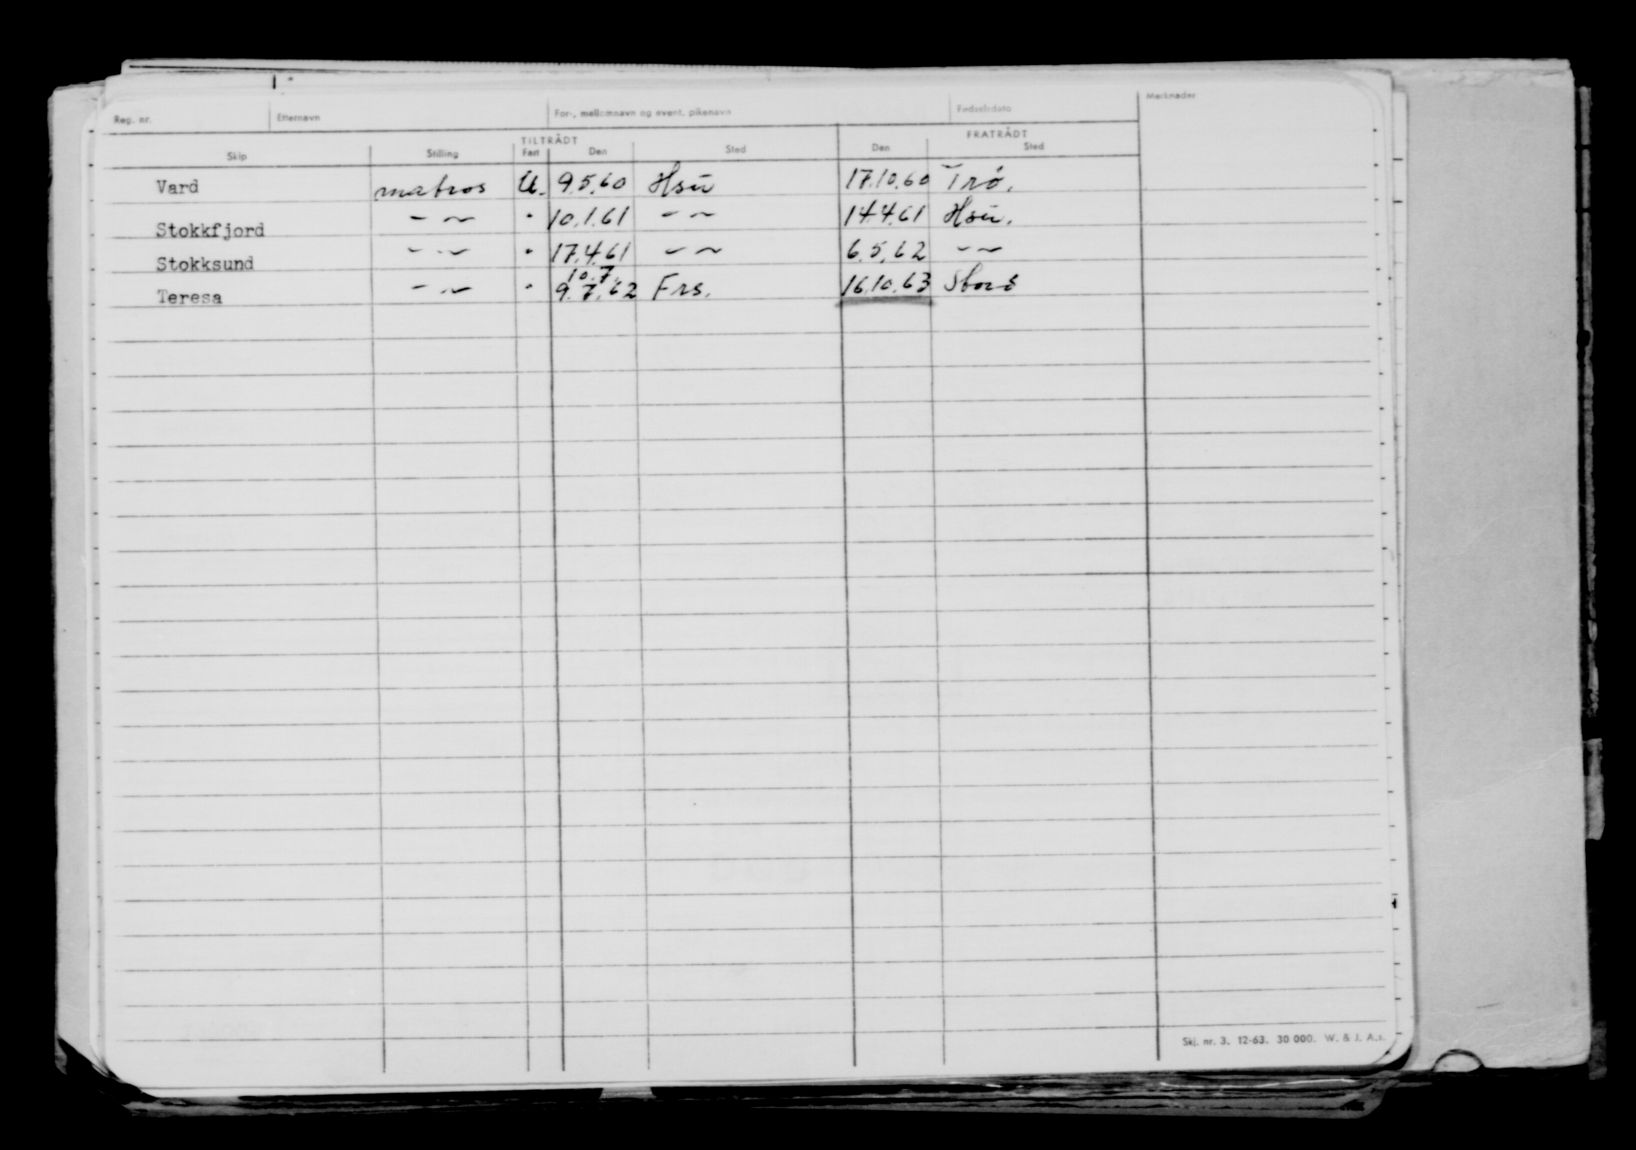 Reg. nr. Etternavn For-, mellomnavn og event. pikenavn Fødselsdato Merknader
TILTRÅDT FRATRÅDT
Skip Stilling Fart Den Sted Den Sted
Vard matros U. 9.5.60 Hsu 17.10.60 Trö.
Stokkfjord - ~ " 10.1.61 - ~ 14.4.61 Hsu.
Stokksund - ~ " 17.4.61 - ~ 6.5.62 - ~
10.7.
Teresa - ~ " 9.7.62 Frs. 16.10.63
Skj. nr. 3. 12-63. 30 000. W. & J. A.s.